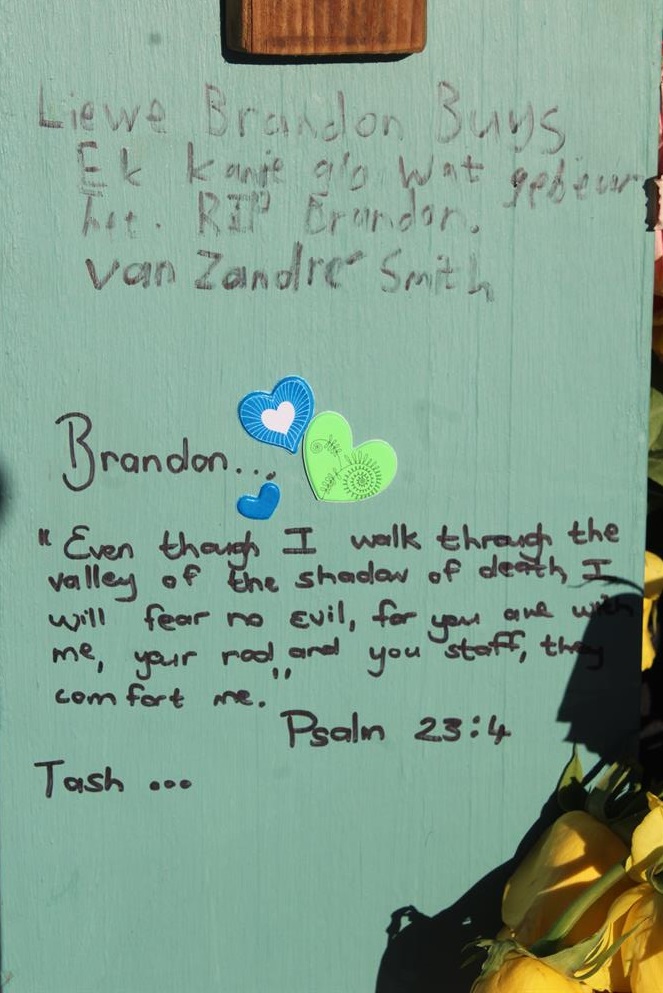 Liewe Brandon Buys
Ek kanje glo wat gebeur
het. RIP Brandon.
van Zandre Smith
Brandon...
"Even though I walk through the
valley of the shadow of death I
will fear no evil, for you are with
me, your rod and you staff, they
comfort me."
Psalm 23:4
Tash ...